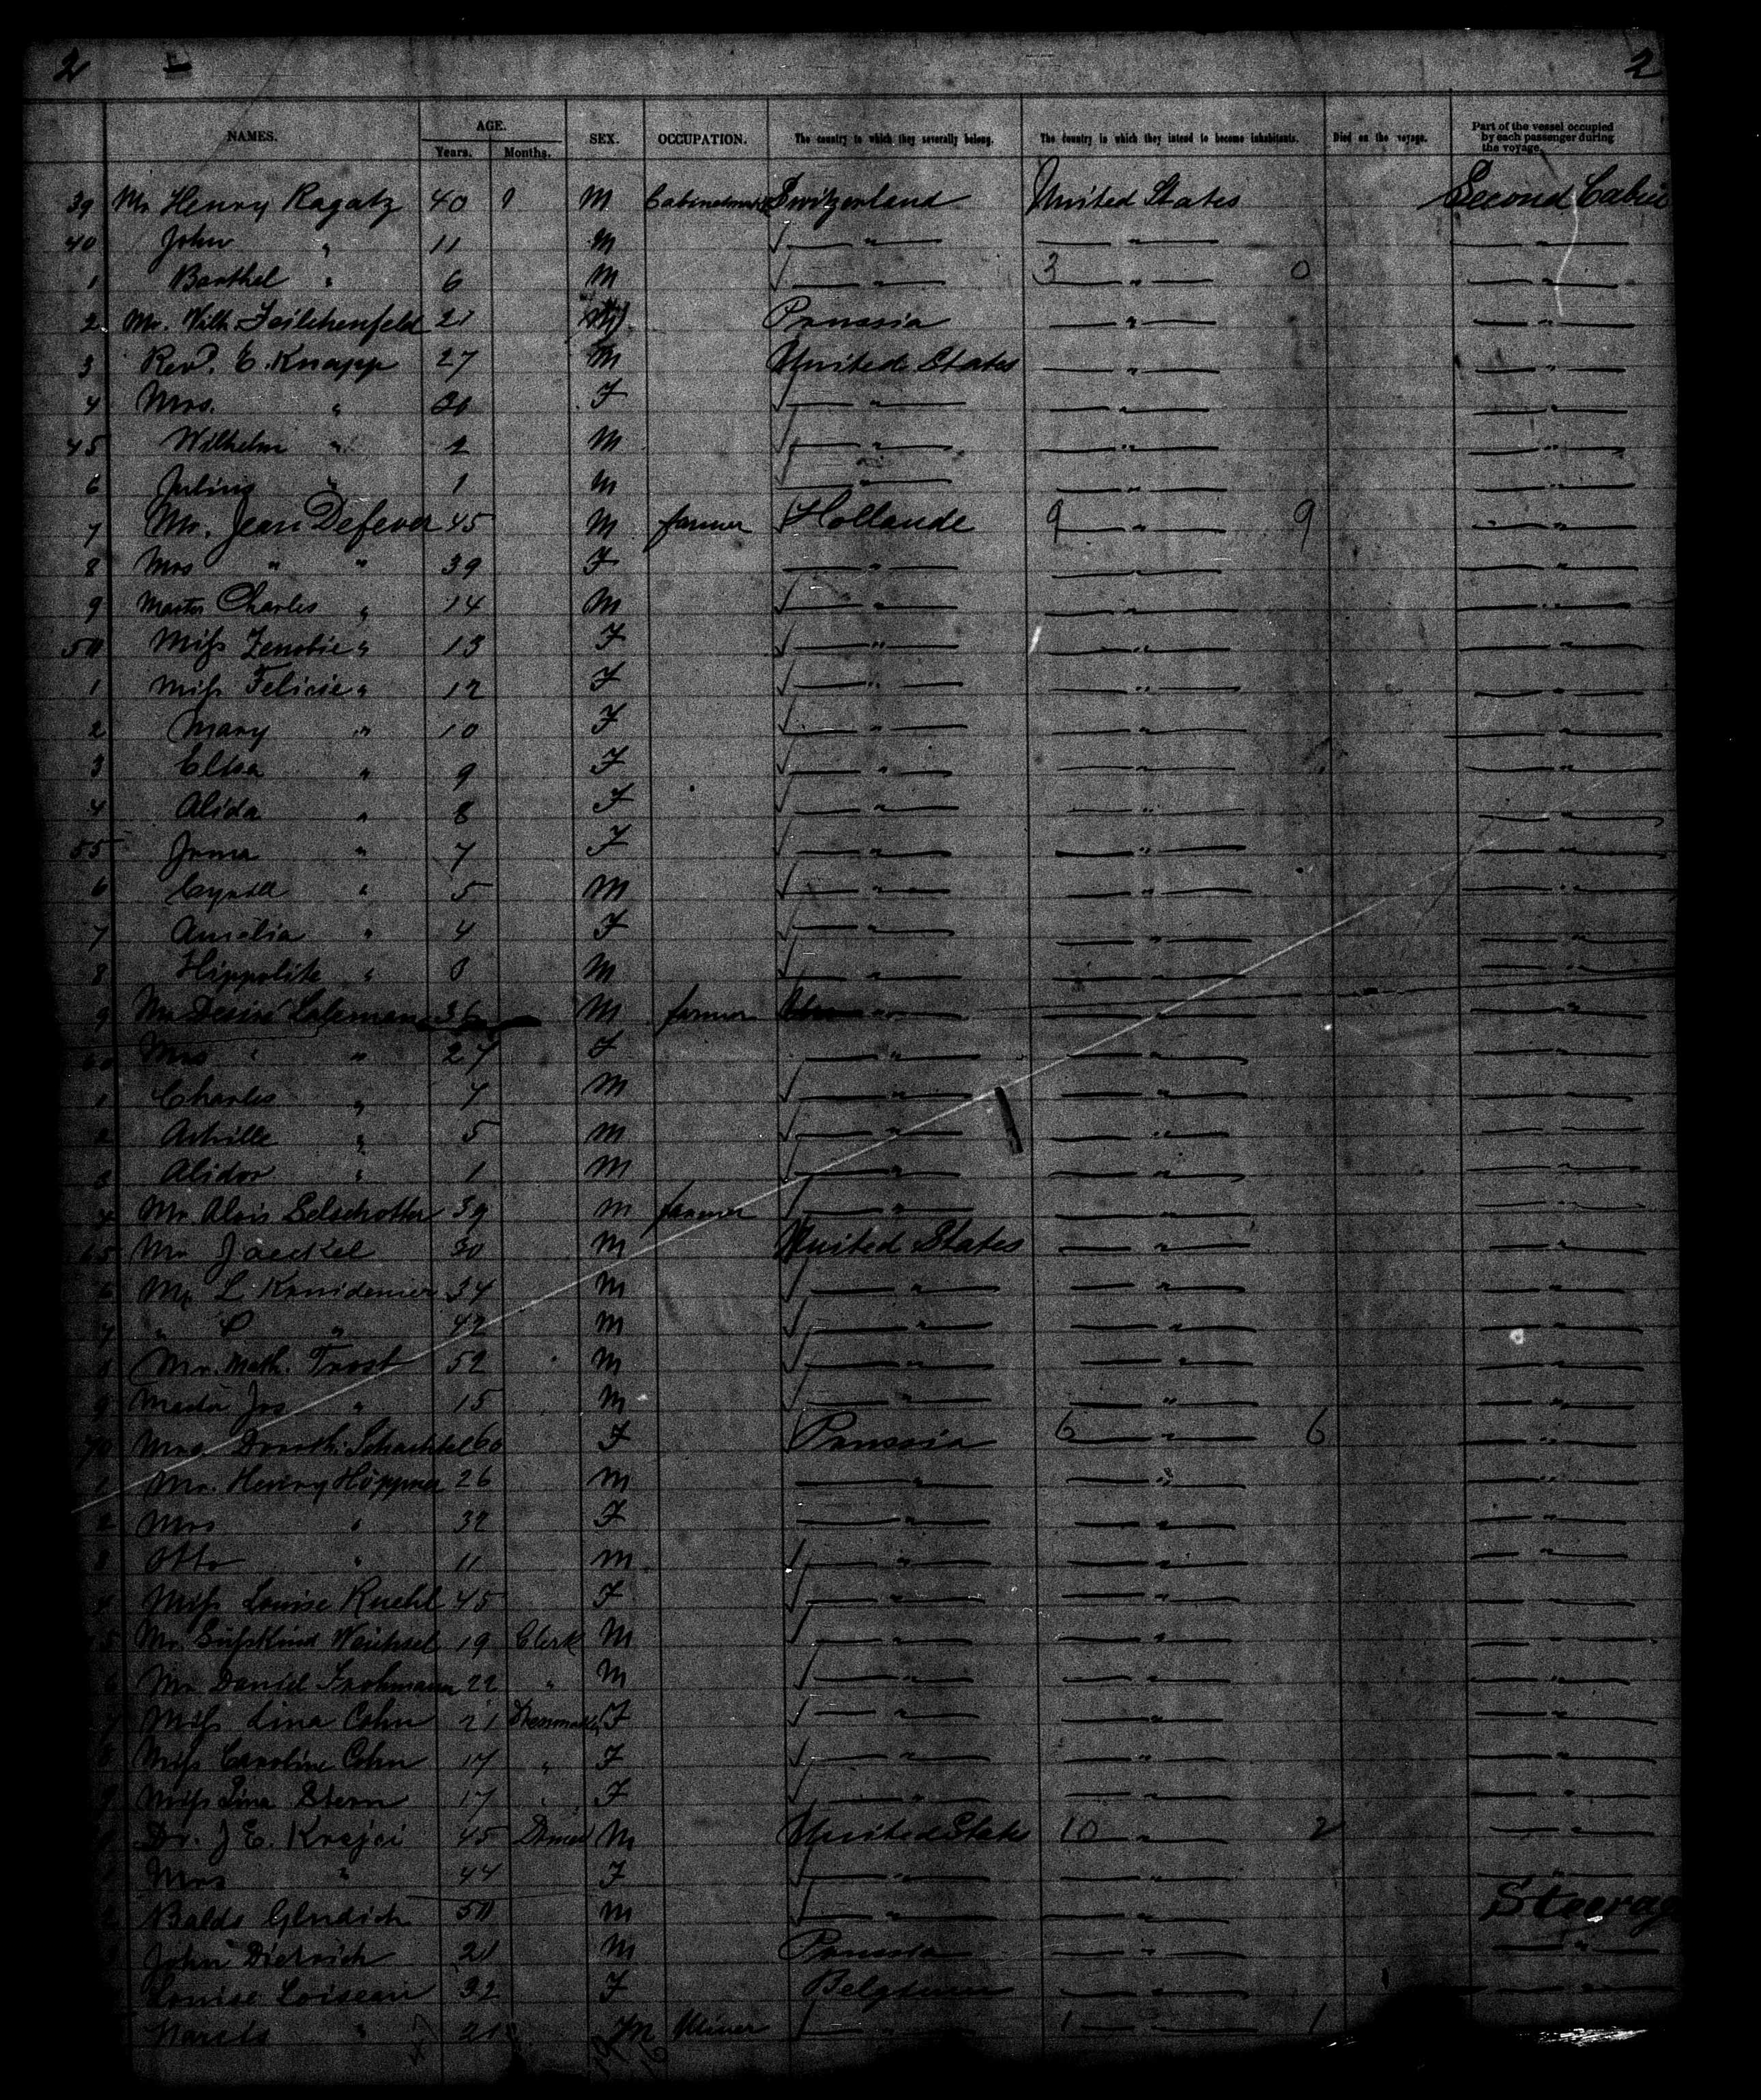 2 2
NAMES. AGE. Years. Months. SEX. OCCUPATION. The country to which they severally belong. The country in which they intend to become inhabitants. Died on the voyage. Part of the vessel occupied by each passenger during the voyage.
39 Mr Henry Ragatz 40 M Switzerland United States Second Cabin
40 John " 11 M " " "
1 Barthel " 6 M " 3 " 0 "
2 Mr. Wilh. Feilchenfeld 21 M Prussia " "
3 Revd. E. Knapp 27 M United States " "
4 Mrs. " F " " "
45 Wilhelm " 2 M " " "
6 Julius " 1 M " " "
7 Mr. Jean Defever 45 M farmer Hollande 9 " 9 "
8 Mrs " " 39 F " " "
9 Master Charles " 14 M " " "
50 Miss Zenobie " 13 F " " "
1 Miss Felicie " 12 F " " "
2 Mary " 10 F " " "
3 Elisa " 9 F " " "
4 Alida " 8 F " " "
55 " 7 F " " "
6 Cyrill " 5 M " " "
7 Amelia " 4 F " " "
8 Hippolite " M " " "
9 Mr Desiré 36 M farmer " " "
60 Mrs " " 27 F " " "
1 Charles " 7 M " " "
2 " 5 M " " "
3 Alidor " 1 M " " "
4 Mr Alois 39 M farmer " " "
65 Mr Jaeckel 30 M United States " "
6 Mr L 34 M " " "
7 " " 42 M " " "
8 Mr. Math. Trost 52 M " " "
9 Jos " 15 M " " "
70 Mrs Doroth. Schachtel 60 F Prussia 6 " 6 "
1 Mr. Henry Höppner 26 M " " "
2 Mrs " 32 F " " "
3 Otto " 11 M " " "
4 Miss Louise Ruehl 45 F " " "
5 Mr. Süsskind Weichsel 19 Clerk M " " "
6 Mr Daniel Frohmann 22 " M " " "
7 Miss Lina Cohn 21 F " " "
8 Miss Caroline Cohn 17 " F " " "
9 Miss Lina Stern 17 " F " " "
Dr. J E. Krejci 45 M United States 10 " 2 "
Mrs " 44 F " " "
Baldo 50 M " " Steerage
John Dietrich 21 M Prussia " "
Louise Loiseau 32 F Belgium " "
" 21 M Miner " 1 " 1